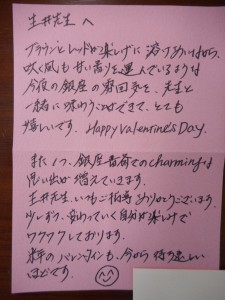 生井先生 へ
ブラウンとレッドが楽しげに溶けあいながら、
吹く風も甘い香りを運んでいるような
今夜の銀座の
一緒に味わうことができて、とても
嬉しいです。Happy Valentine's Day.
また1つ、銀座書斎でのcharmingな
思い出が増えていきます。
生井先生、いつもご指導ありがとうございます。
少しずつ、変わっていく自分が楽しみで
ワクワクしております。
来年のバレンタインも、今から待ち遠しい
ほどです。